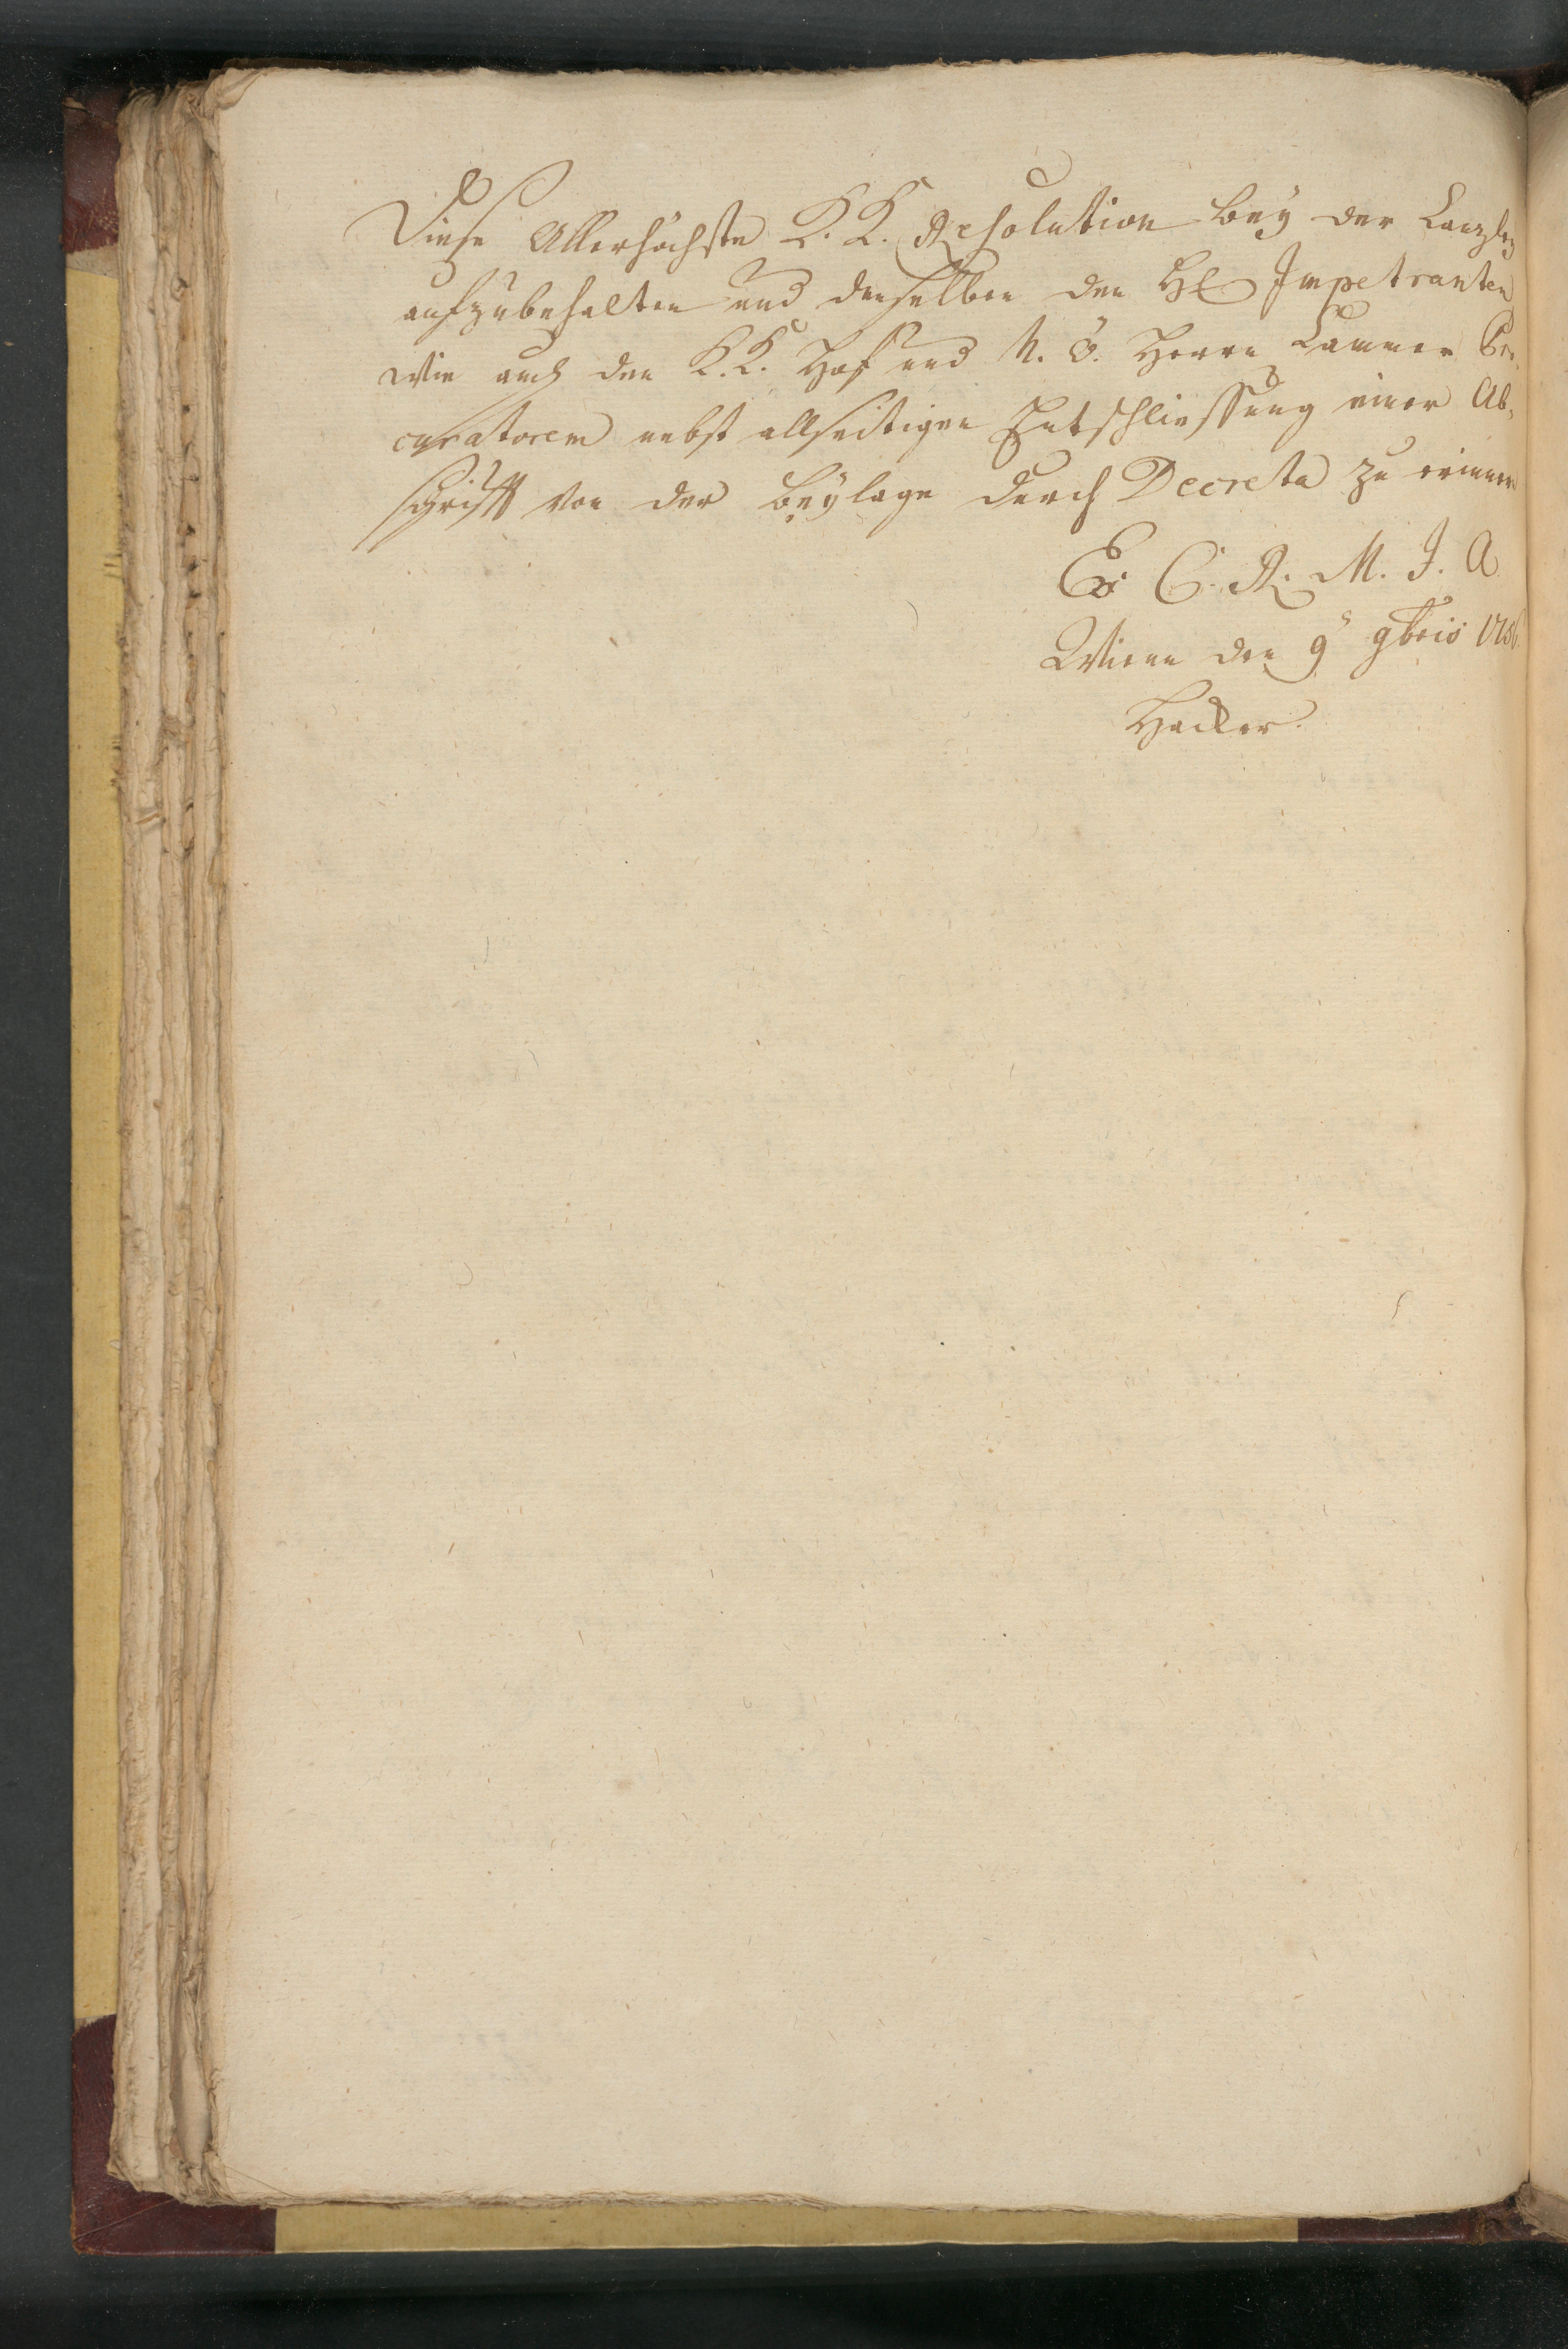 Diese Allerhöchste K. K. Resolution bey der Canzley
aufzubehalten und denselben den H Impetranten
wie auch den K. K. Hof und N. Ö. Herrn Cammer Pro,
curatorem nebst allseitigen Entschliessung einer Ab,
schrifft von der beylage durch Decreta zu erinnern
Ex C. R. M. J. A
Wienn den 9 9bris
Hacker.